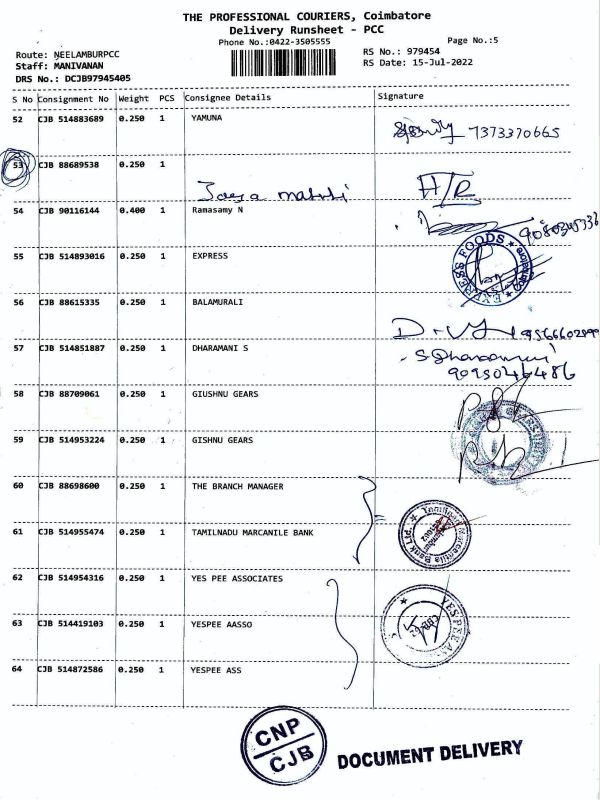 THE PROFESSIONAL COURIERS, Coimbatore
Delivery Runsheet - PCC
Phone No.:0422-3505555
Page No.:5
Route: NEELAMBURPCC
Staff: MANIVANAN
DRS No.: DCJB97945405
RS No.: 979454
RS Date: 15-Jul-2022
S No Consignment No Weight PCS Consignee Details Signature
52 CJB 514883689 0.250 1 YAMUNA
7373370665
53 CJB 88689538 0.250 1
54 CJB 90116144 0.400 1 Ramasamy N
55 CJB 514893016 0.250 1 EXPRESS
EXPRESS FOODS
56 CJB 88615335 0.250 1 BALAMURALI
57 CJB 514851887 0.250 1 DHARAMANI S
58 CJB 88709061 0.250 1 GIUSHNU GEARS
59 CJB 514953224 0.250 1 GISHNU GEARS
60 CJB 88698600 0.250 1 THE BRANCH MANAGER
61 CJB 514955474 0.250 1 TAMILNADU MARCANILE BANK
62 CJB 514954316 0.250 1 YES PEE ASSOCIATES
63 CJB 514419103 0.250 1 YESPEE AASSO
64 CJB 514872586 0.250 1 YESPEE ASS
CNP
CJB
DOCUMENT DELIVERY